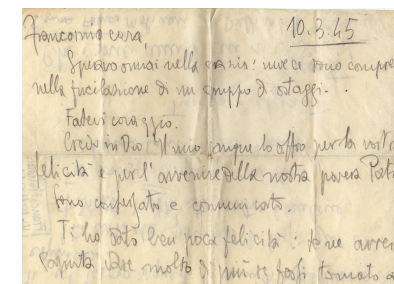 10.3.45
Francesina cara
Speravo ormai nella grazia! invece sono compre
nella fucilazione di un gruppo di ostaggi. .
Fatevi coraggio.
Credo in Dio! Il mio sangue lo offro per la vostr
felicità e per l'avvenire della nostra povera Patr
Sono confessato e comunicato.
Ti ho dato ben poca felicità: te ne avrei
saputa dare molto di più se fossi tornato a